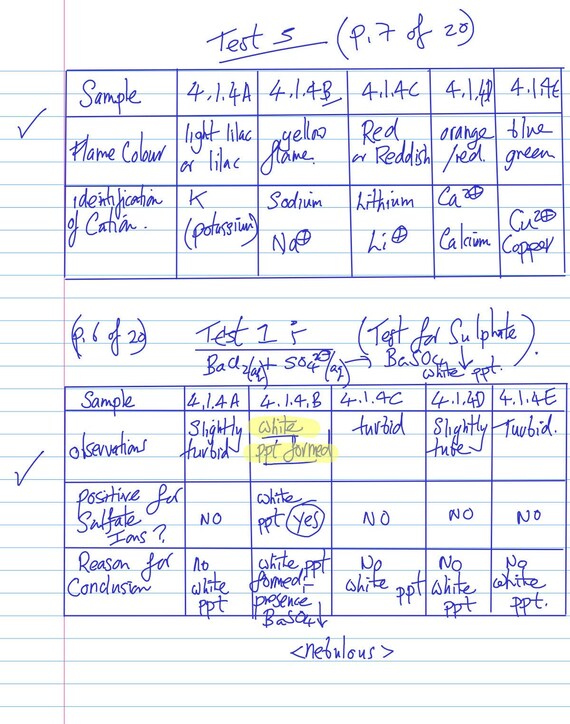 Test 5 (p. 7 of 20)
Sample 4.1.4A 4.1.4B 4.1.4C 4.1.4D 4.1.4E
Flame Colour light lilac or lilac yellow flame. Red or Reddish orange /red. blue green
identification of Cation. K (potassium) Sodium Na⊕ Lithium Li⊕ Ca²⊕ Calcium Cu²⊕ Copper
(p. 6 of 20) Test 1 : (Test for Sulphate).
BaCl₂(aq) + SO₄²⊖(aq) → BaSO₄↓ white ppt.
Sample 4.1.4A 4.1.4.B 4.1.4C 4.1.4D 4.1.4E
observations Slightly turbid white ppt formed turbid Slightly Turbid.
positive for Sulfate Ions? NO white ppt yes NO NO NO
Reason for Conclusion no white ppt white ppt formed, presence BaSO₄↓ No white ppt No white ppt No white ppt.
<nebulous>